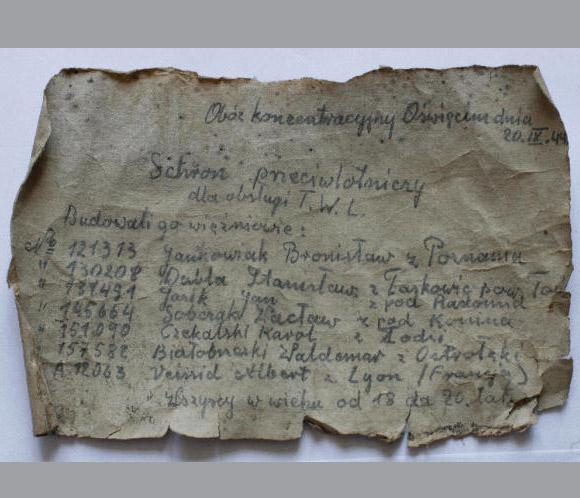 Obóz koncentracyjny Oświęcim dnia
20.IX.44
Schron przeciwlotniczy
dla obsługi T.W.L.
Budowali go więźniowie:
No 121313 Jankowiak Bronisław z Poznania
" 130208 Dubla Stanisław z Łaskowic pow.
" 131491 Jasik Jan z pod Radomia
" 145664 Sobczak Wacław z pod Konina
" 151090 Czekalski Karol z Łodzi
157582 Białobrzeski Waldemar z Ostrołęki
A 12063 Veissid Albert z Lyon (Francja)
Wszyscy w wieku od 18 do 20. lat.